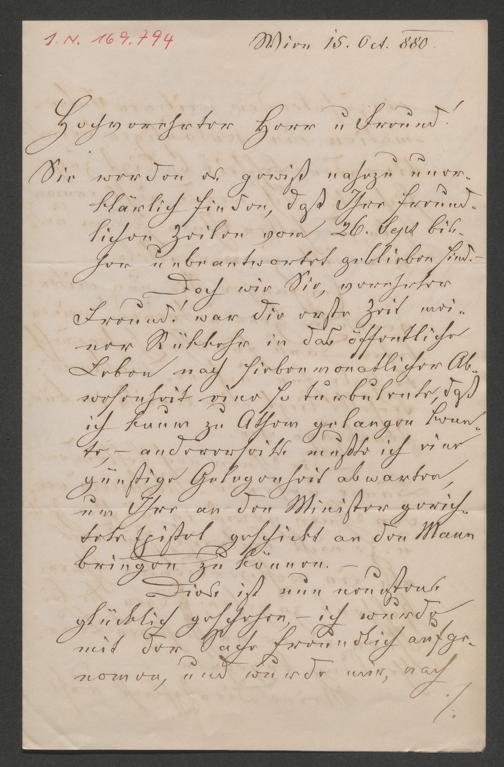 I. N. 169.794
Wien 15. Oct. 880.
Hochverehrter Herr u Freund!
Sie werden es gewiß nahezu uner-
klärlich finden, daß Ihre freund-
lichen Zeilen vom 26. Sept bis-
her unbeantwortet geblieben sind.-
Doch wie Sie, verehrter
Freund! war die erste Zeit mei-
ner Rükkehr in das öffentliche
Leben nach siebenmonatlicher Ab-
wesenheit eine so turbulente, daß
ich kaum zu Athem gelangen konn-
te, - andererseits mußte ich eine
günstige Gelegenheit abwarten,
um Ihre an den Minister gerich-
tete Epistel geschickt an den Mann
bringen zu können. -
Dies ist nun neustens
glücklich geschehen, - ich wurde
mit der Sache freundlich aufge-
nomen, und wurde mir, nach
./.